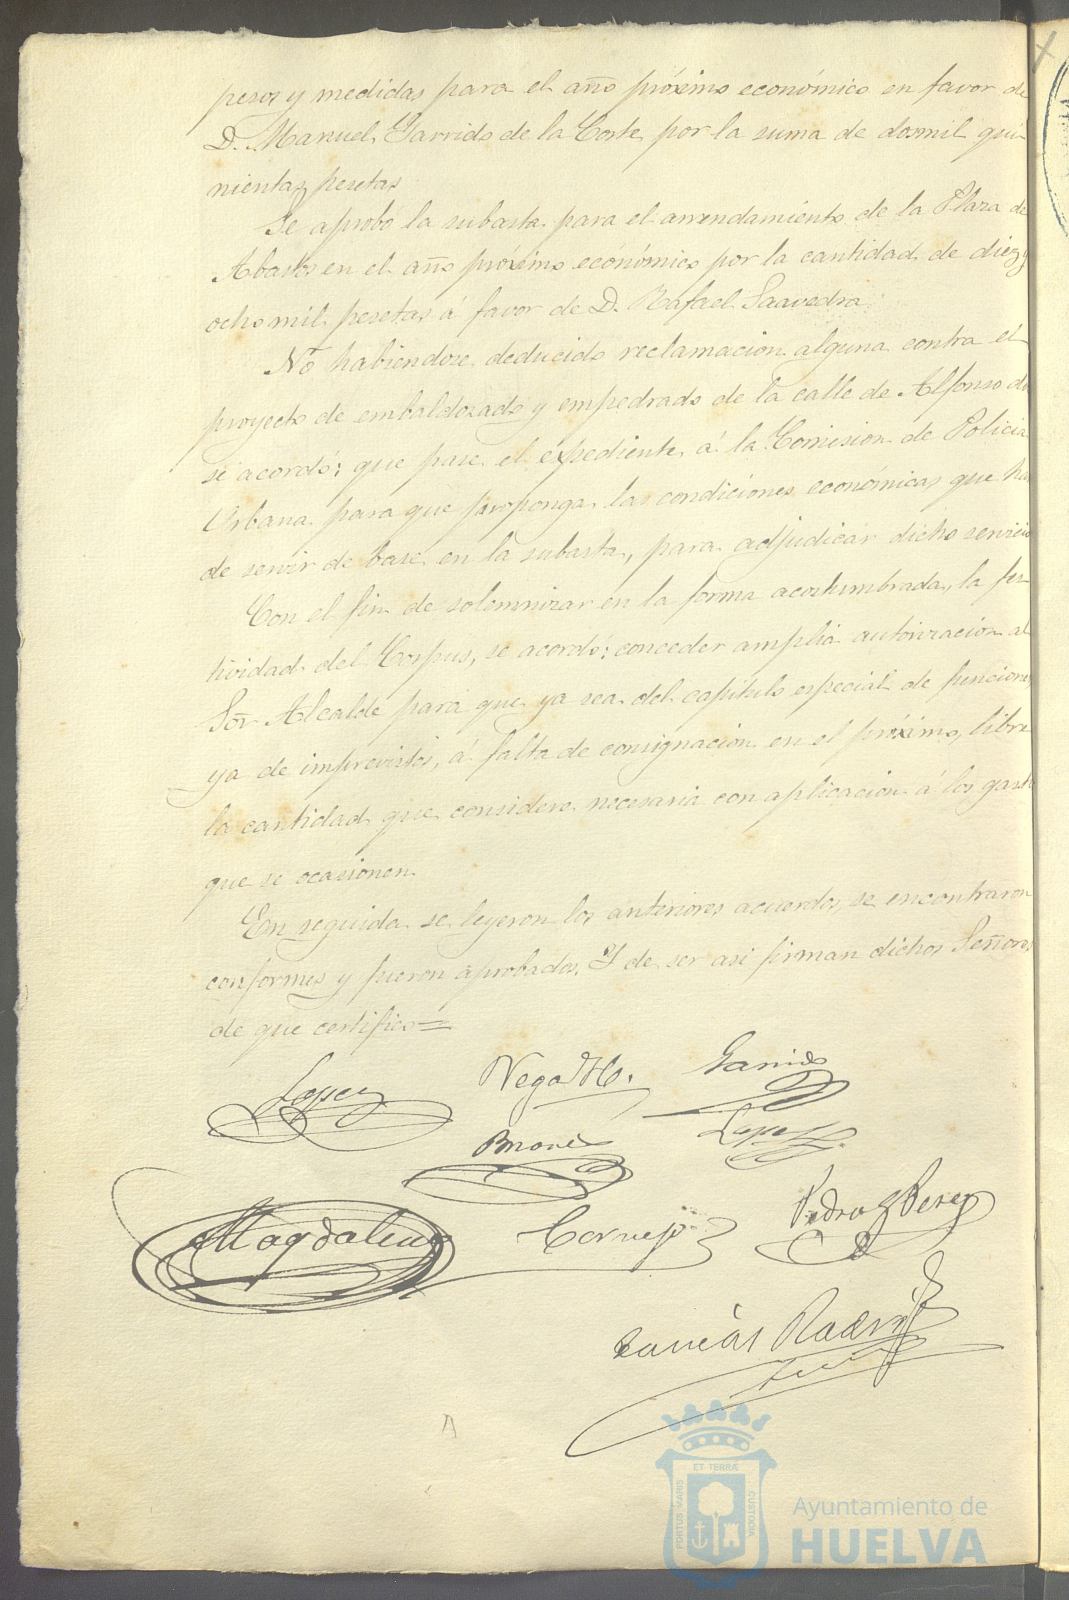 pesos y medidas para el año próximo económico en favor de
D. Manuel Garrido de la Corte por la suma de dosmil qui
nientas pesetas
Se aprobó la subasta para el arrendamiento de la Plaza de
Abastos en el año próximo económico por la cantidad de diez y
ocho mil pesetas á favor de D. Rafael Saavedra.
No habiendose deducido reclamacion alguna contra el
proyecto de embaldosado y empedrado de la calle de Alfonso do
se acordó: que pase el expediente á la Comision de Policia
Urbana para que proponga las condiciones económicas que ha
de servir de base en la subasta, para adjudicar dicho servicio
Con el fin de solemnizar en la forma acostumbrada, la fes
tividad del Corpus, se acordó: conceder amplia autorizacion al
Sor Alcalde para que ya sea del capítulo especial de funciones
ya de imprevistos, á falta de consignacion en el próximo, libre
la cantidad que considere necesaria con aplicacion á los gast
que se ocasionen.
En seguida se leyeron los anteriores acuerdos, se encontraron
conformes y fueron aprobados. Y de ser asi firman dichos Señores
de que certifico=
Lopez Vega Garrido
Lopez
Magdalena Cornejo Pedro Perez
ET TERRA
PORTUS MARIS
CUSTODIA
Ayuntamiento de
HUELVA